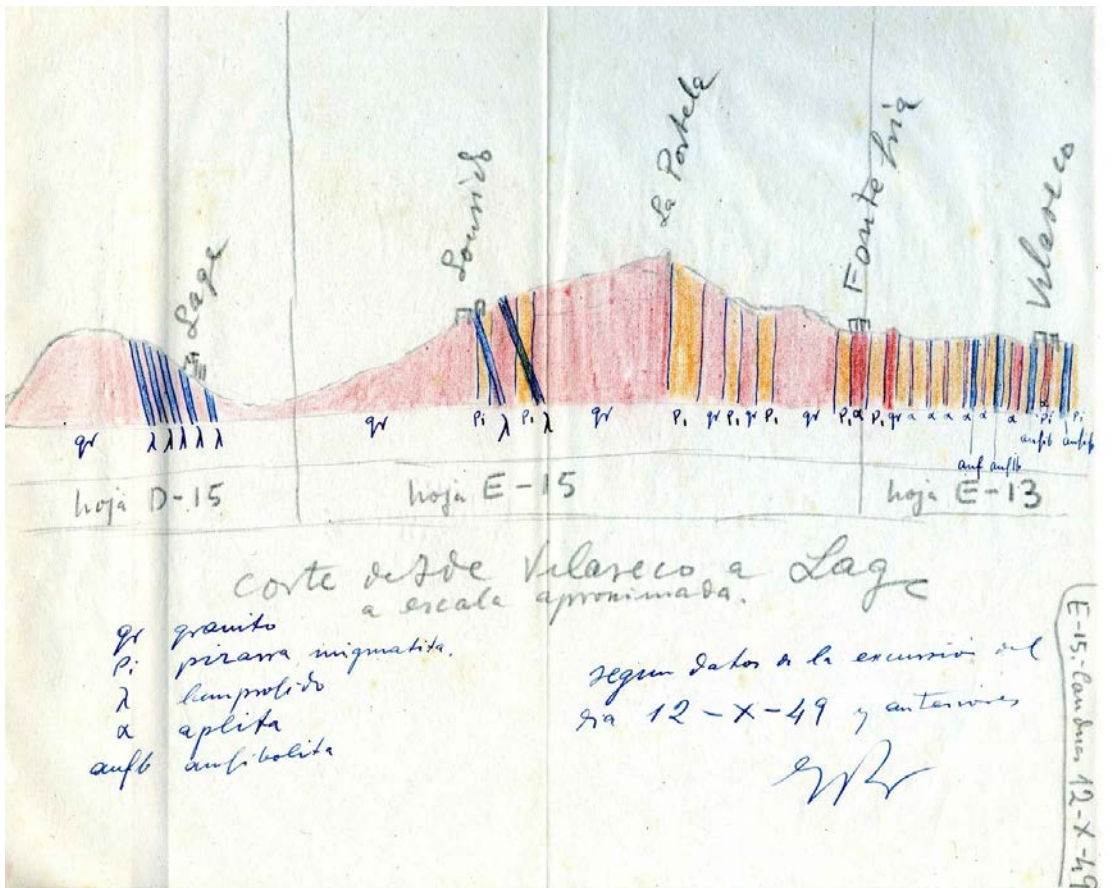 Lage
Lourido
La Portela
Fontefría
Vilaseco
gr λ λ λ λ λ gr Pi λ Pi λ gr Pi gr Pi gr Pi gr Pi α Pi gr α α α α α α α Pi
anfib anfib
anf anfib
hoja D-15 hoja E-15 hoja E-13
corte desde Vilaseco a Lage
a escala aproximada.
gr granito
Pi pizarra migmatita.
λ lamprofido
α aplita
anfb anfibolita
segun datos de la excursión del
dia 12-X-49 y anteriores
E-15.- 12-X-49